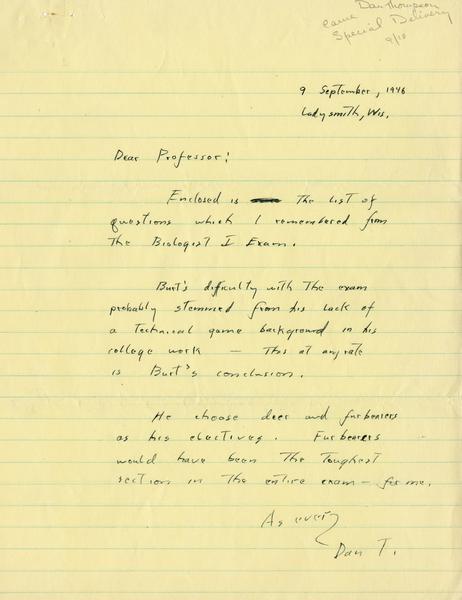 Dan Thompson
came Special Delivery
9/10
9 September, 1946
Ladysmith, Wis.
Dear Professor:
Enclosed is the list of
questions which I remembered from
the Biologist I Exam.
Burt's difficulty with the exam
probably stemmed from his lack of
a technical game background in his
college work — this at any rate
is Burt's conclusion.
He choose deer and furbearers
as his electives. Furbearers
would have been the toughest
section in the entire exam — for me.
As ever,
Dan T.